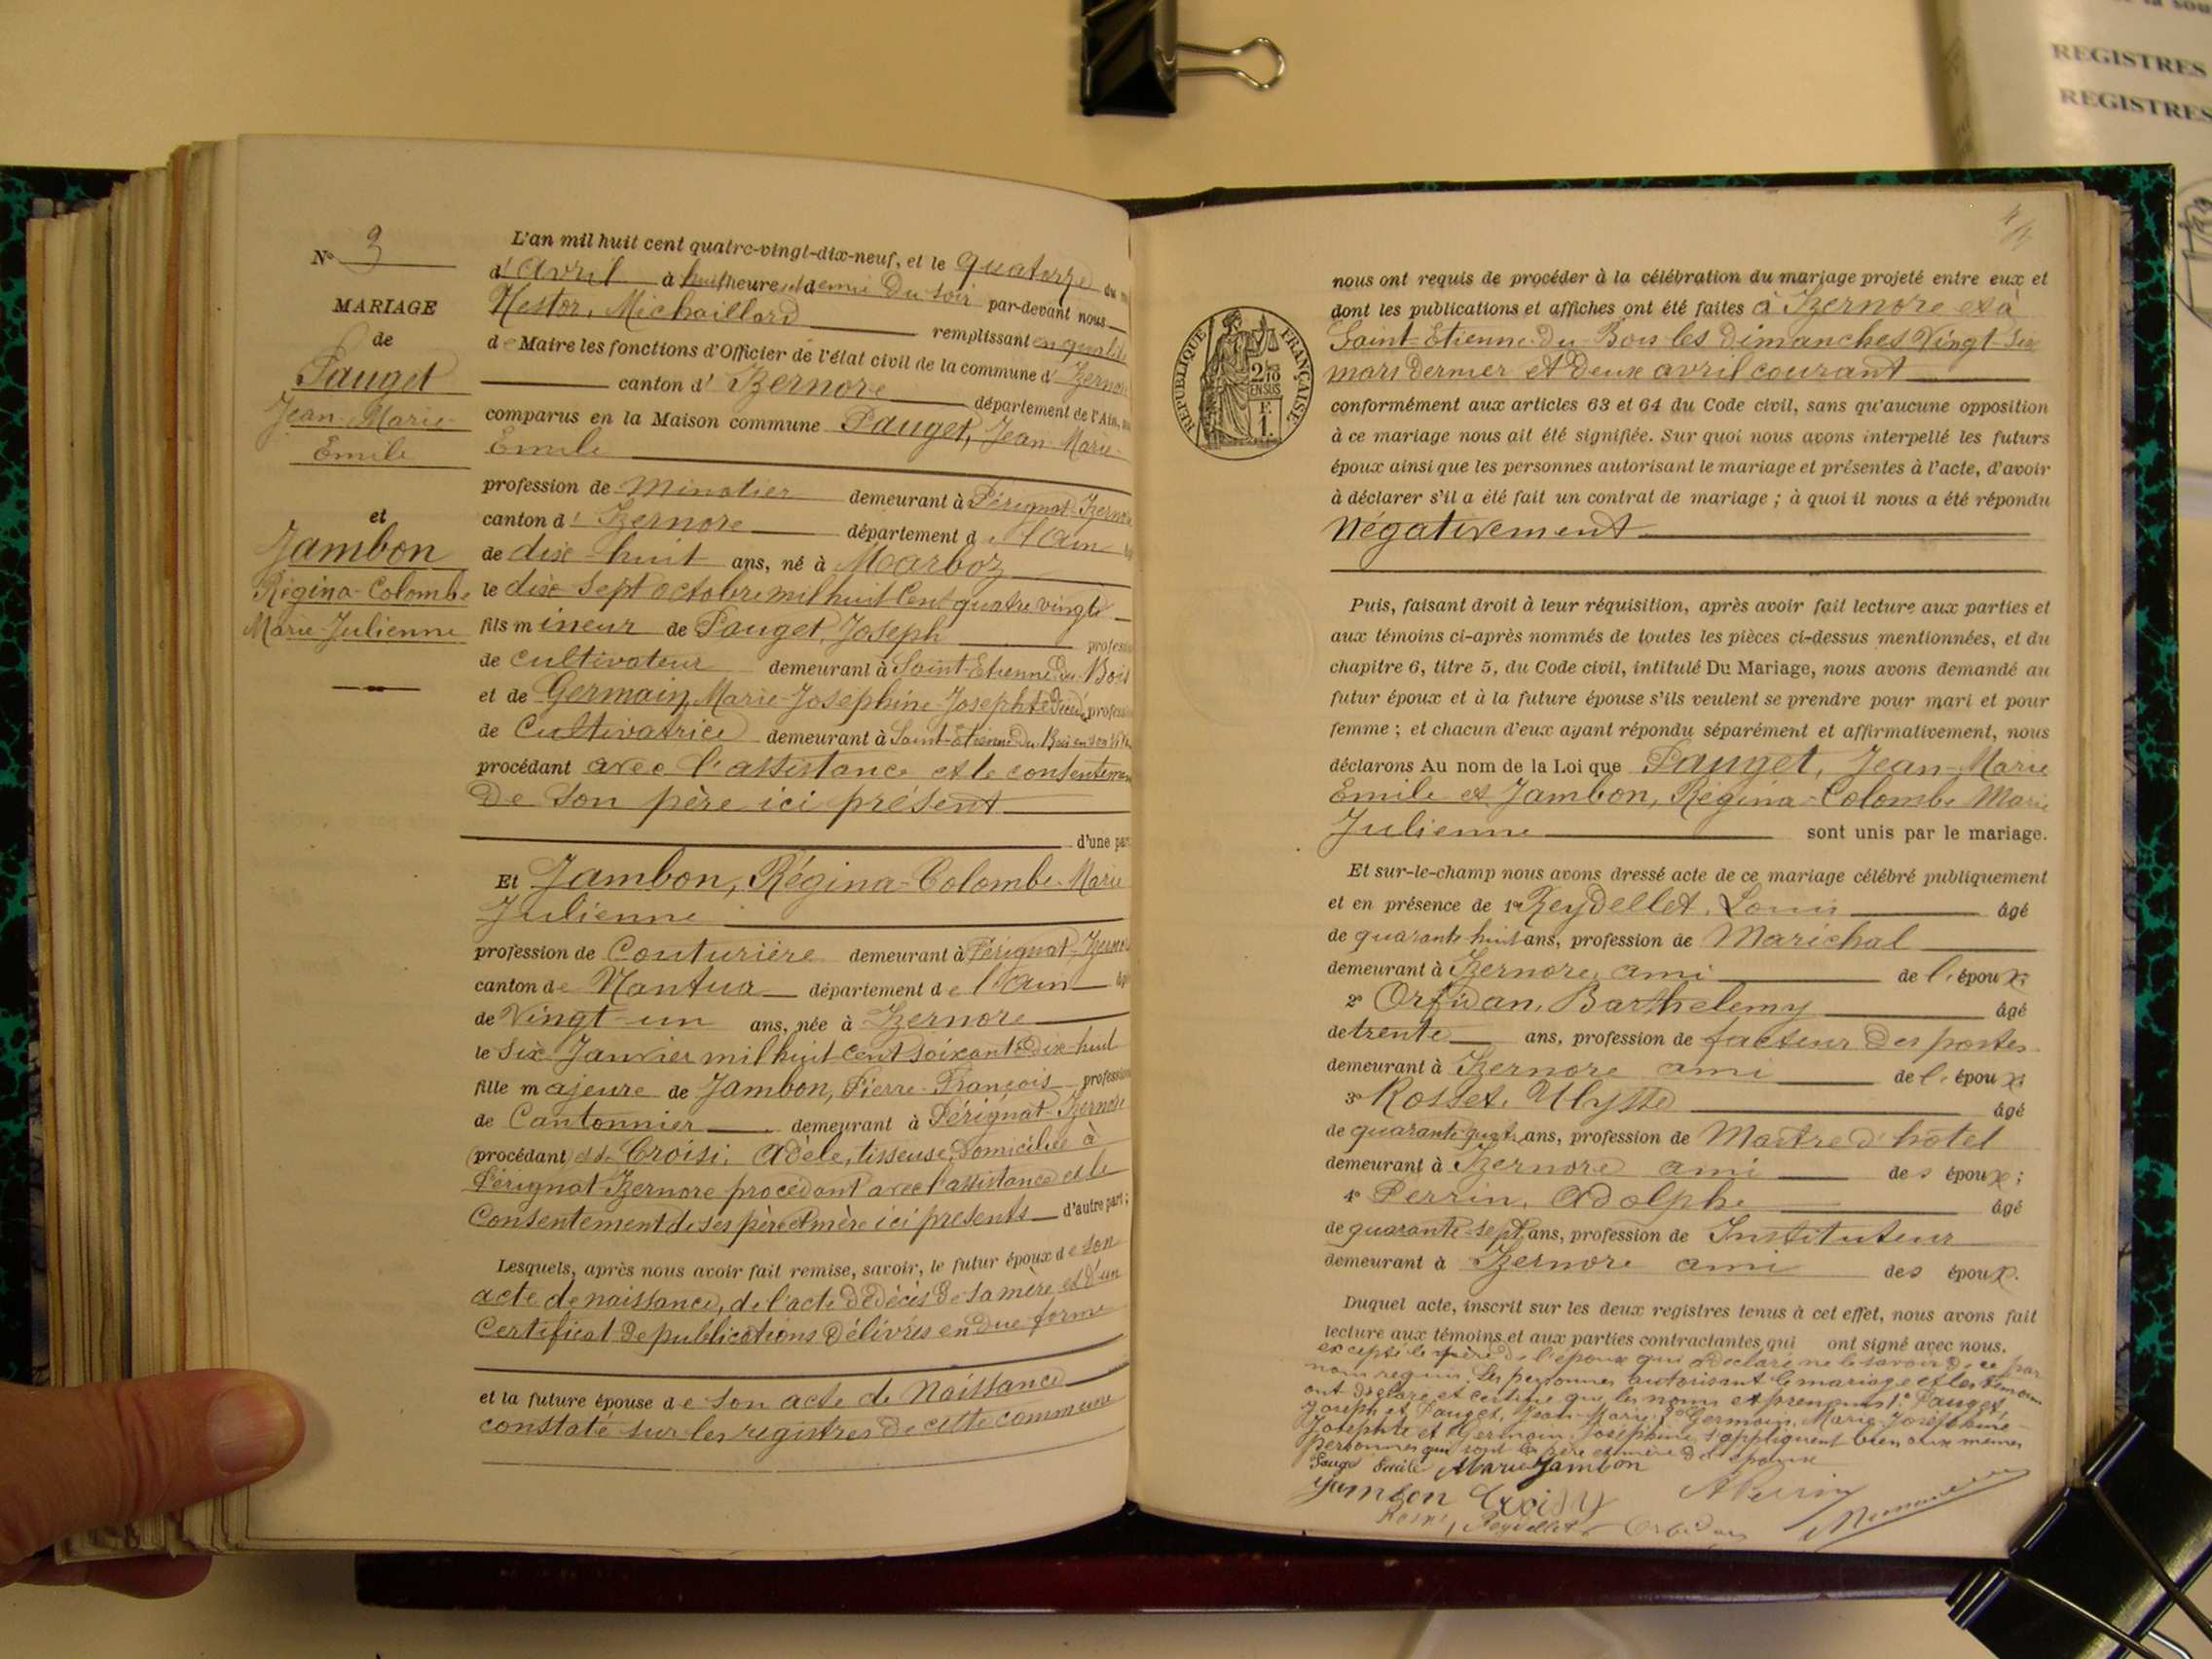 N° 3
MARIAGE
de
Pauget
Jean-Marie-
Emile
et
Jambon
Régina-Colombe
Marie-Julienne
L'an mil huit cent quatre-vingt-dix-neuf, et le quatorze du
d'Avril à huit heures et demie du soir par-devant nous
Nestor, Michaillard remplissant en qualité
de Maire les fonctions d'Officier de l'état civil de la commune d'Izernore
canton d'Izernore département de l'Ain,
comparus en la Maison commune Pauget, Jean-Marie-
Emile
profession de Minotier demeurant à Pérignat-Izernore
canton d'Izernore département de l'Ain
de dix-huit ans, né à Marboz
le dix sept octobre mil huit cent quatre vingts
fils mineur de Pauget, Joseph profession
de cultivateur demeurant à Saint-Etienne du Bois
et de Germain, Marie-Joséphine-Josephte décédée profession
de Cultivatrice demeurant à Saint-Etienne du Bois en son vivant
procédant avec l'assistance et le consentement
de son père ici présent
d'une part
Et Jambon, Régina-Colombe-Marie
Julienne
profession de Couturière demeurant à Pérignat-Izernore
canton de Nantua département de l'Ain
de Vingt-un ans, née à Izernore
le Six Janvier mil huit cent soixante dix-huit
fille majeure de Jambon, Pierre-François profession
de Cantonnier demeurant à Pérignat-Izernore
(procédant) et de Croisi, Adèle, tisseuse, domiciliée à
Pérignat-Izernore procédant avec l'assistance et le
Consentement de ses père et mère ici présents d'autre part ;
Lesquels, après nous avoir fait remise, savoir, le futur époux de son
acte de naissance, de l'acte de décès de sa mère et d'un
Certificat de publications délivrés en due forme
et la future épouse de son acte de Naissance
constaté sur les registres de cette commune
nous ont requis de procéder à la célébration du mariage projeté entre eux et
dont les publications et affiches ont été faites à Izernore et à
Saint-Etienne-du-Bois les dimanches Vingt-six
mars dernier et deux avril courant
conformément aux articles 63 et 64 du Code civil, sans qu'aucune opposition
à ce mariage nous ait été signifiée. Sur quoi nous avons interpellé les futurs
époux ainsi que les personnes autorisant le mariage et présentes à l'acte, d'avoir
à déclarer s'il a été fait un contrat de mariage ; à quoi il nous a été répondu
Négativement
Puis, faisant droit à leur réquisition, après avoir fait lecture aux parties et
aux témoins ci-après nommés de toutes les pièces ci-dessus mentionnées, et du
chapitre 6, titre 5, du Code civil, intitulé Du Mariage, nous avons demandé au
futur époux et à la future épouse s'ils veulent se prendre pour mari et pour
femme ; et chacun d'eux ayant répondu séparément et affirmativement, nous
déclarons Au nom de la Loi que Pauget, Jean-Marie
Emile et Jambon, Régina-Colombe Marie
Julienne sont unis par le mariage.
Et sur-le-champ nous avons dressé acte de ce mariage célébré publiquement
et en présence de 1° Reydellet, Louis âgé
de quarante huit ans, profession de Maréchal
demeurant à Izernore, ami de l'époux;
2° Orfidan, Barthelemy âgé
de trente ans, profession de facteur des postes
demeurant à Izernore ami de l'époux;
3° Rosset, Ulysse âgé
de quarante quatre ans, profession de Maître d'hôtel
demeurant à Izernore ami des époux;
4° Perrin, Adolphe âgé
de quarante-sept ans, profession de Instituteur
demeurant à Izernore ami des époux.
Duquel acte, inscrit sur les deux registres tenus à cet effet, nous avons fait
lecture aux témoins et aux parties contractantes qui ont signé avec nous.
excepté le père de l'époux qui a déclaré ne le savoir de ce par
nous requis. Les personnes autorisant le mariage et les témoins
ont déclaré et certifié que les noms et prénoms 1° Pauget,
Joseph et Pauget, Jean-Marie; 2° Germain, Marie-Joséphine
Josephte et Germain Joséphine s'appliquent bien aux mêmes
personnes qui sont le père et mère de l'époux
Pauget Emile Marie Jambon
Jambon Croisy APerrin
Reydellet
RÉPUBLIQUE FRANÇAISE
2/10
EN SUS
F.
1.
REGISTRES
REGISTRES